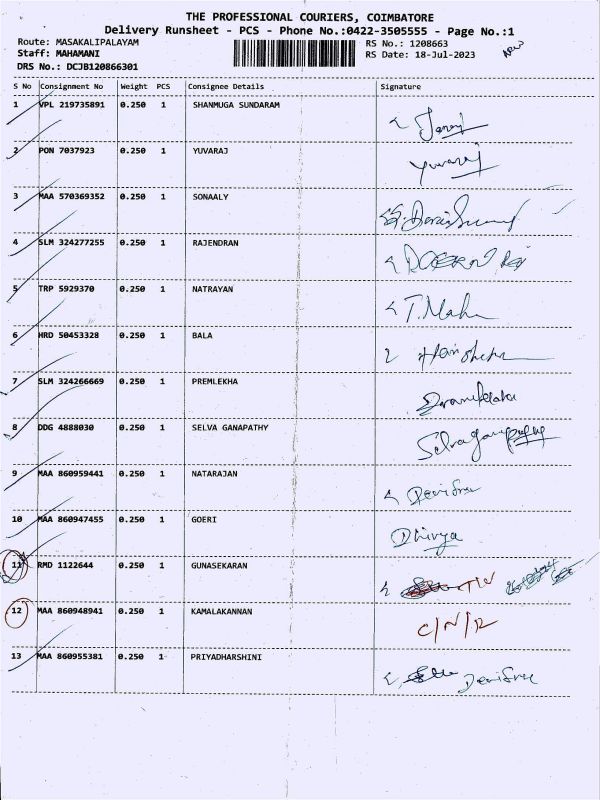 THE PROFESSIONAL COURIERS, COIMBATORE
Delivery Runsheet - PCS - Phone No.:0422-3505555 - Page No.:1
Route: MASAKALIPALAYAM RS No.: 1208663
Staff: MAHAMANI RS Date: 18-Jul-2023
DRS No.: DCJB120866301
S No Consignment No Weight PCS Consignee Details Signature
1 VPL 219735891 0.250 1 SHANMUGA SUNDARAM
2 PON 7037923 0.250 1 YUVARAJ Yuvaraj
3 MAA 570369352 0.250 1 SONAALY
4 SLM 324277255 0.250 1 RAJENDRAN
5 TRP 5929370 0.250 1 NATRAYAN T.Maha
6 HRD 50453328 0.250 1 BALA
7 SLM 324266669 0.250 1 PREMLEKHA
8 DDG 4888030 0.250 1 SELVA GANAPATHY Selvaganapathy
9 MAA 860959441 0.250 1 NATARAJAN DeviSree
10 MAA 860947455 0.250 1 GOERI Dhivya
11 RMD 1122644 0.250 1 GUNASEKARAN
12 MAA 860948941 0.250 1 KAMALAKANNAN C/N/R
13 MAA 860955381 0.250 1 PRIYADHARSHINI DeviSree